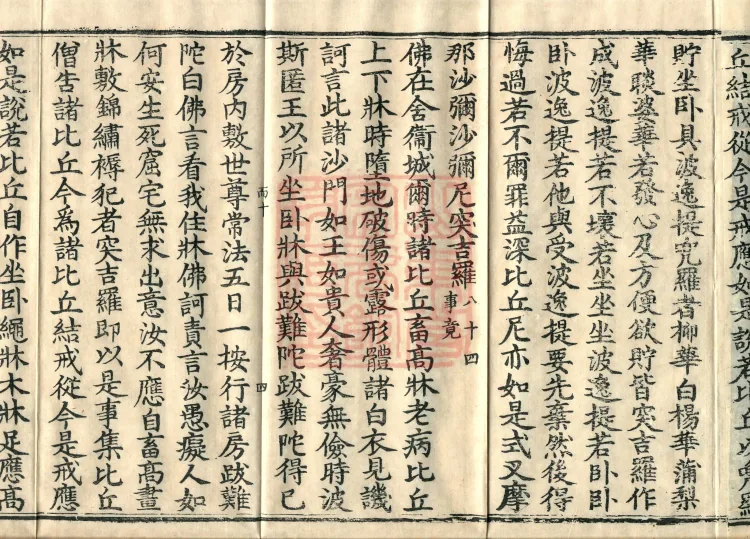 丘結戒從今是戒應如是說若比丘以兜羅
貯坐卧具波逸提兜羅者柳華白楊華蒲梨
華睒婆華若發心及方便欲貯皆突吉羅作
成波逸提若不壞若坐坐坐波逸提若卧卧
卧波逸提若他與受波逸提要先棄然後得
悔過若不爾罪益深比丘尼亦如是式叉摩
那沙彌沙彌尼突吉羅八十四事竟
佛在舍衞城爾時諸比丘畜高牀老病比丘
上下牀時墮地破傷或露形體諸白衣見譏
訶言此諸沙門如王如貴人奢豪無儉時波
斯匿王以所坐卧牀與跋難陀跋難陀得已
而十 四
於房内敷世尊常法五日一按行諸房跋難
陀白佛言看我住牀佛訶責言汝愚癡人如
何安生死窟宅無求出意汝不應自畜高畫
牀敷錦繡褥犯者突吉羅即以是事集比丘
僧告諸比丘今為諸比丘結戒從今是戒應
如是說若比丘自作坐卧繩牀木牀足應高